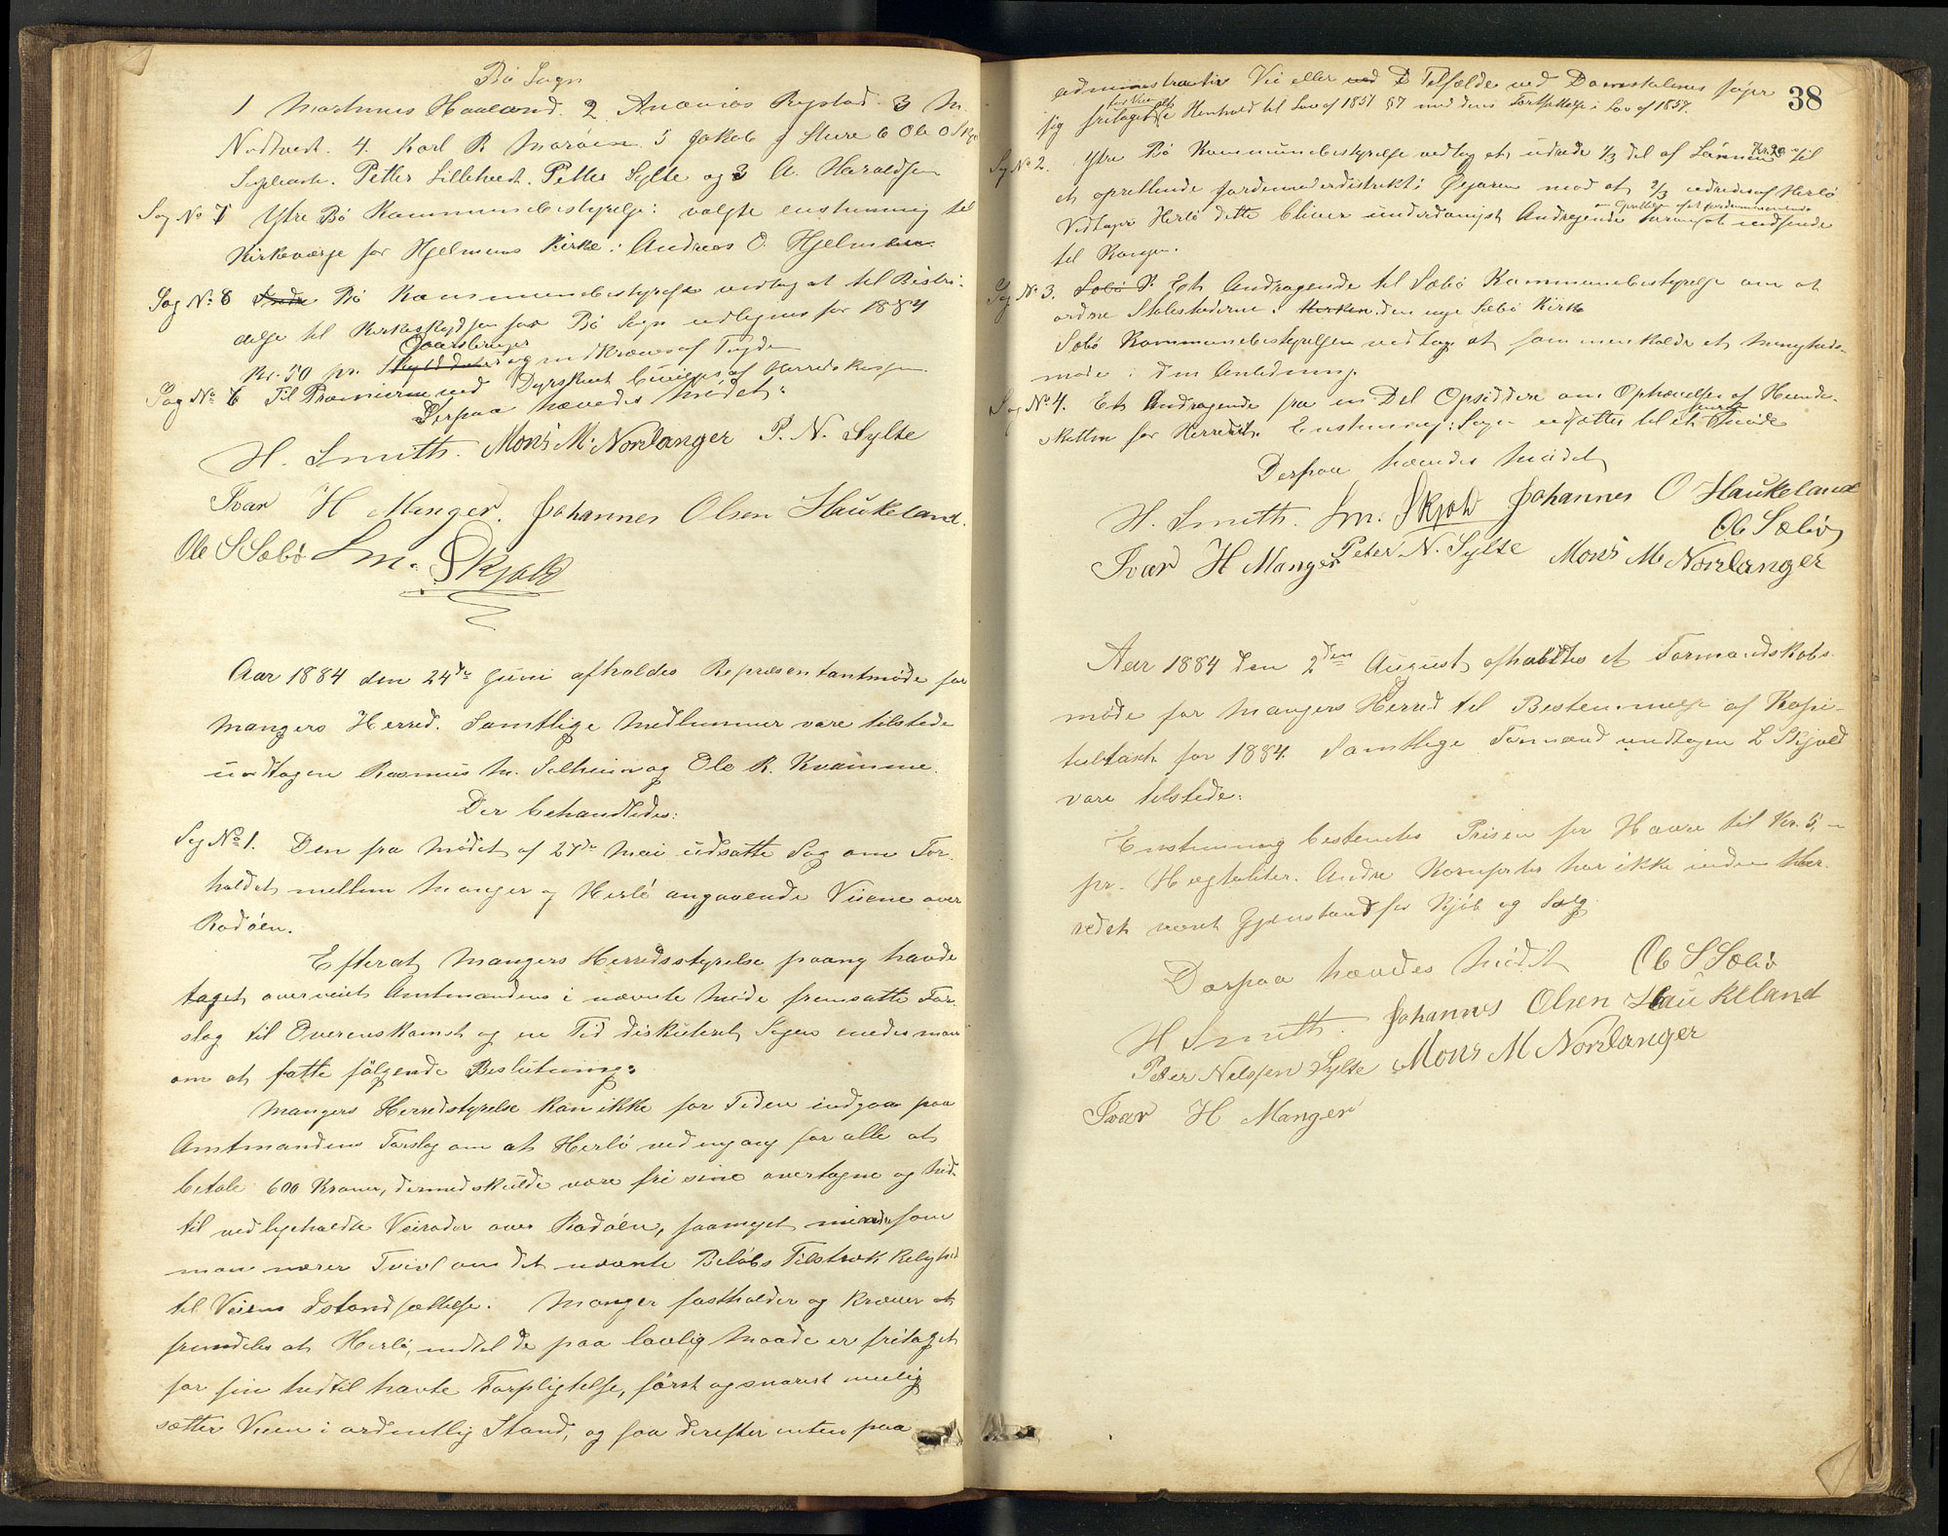 Bø Sogn
1 Martinus Haaland. 2 Ananias Rystad. 3 M.
Nodtvedt. 4. Karl R. Marøen 5 Jakob J Sture 6 Ole O
Supleant. Petter Lilletvedt. Petter Sylte og 3 A. Haraldsen
Sag No 7 Ytre Bø Kommunebestyrelse: valgte enstemmig til
Kirkeværge for Hjelmens Kirke: Andreas O. Hjelmen
Sag No 8 Indre Bø Kommunebestyrelse vedtog at til Bestri-
delse til Kirkeskyds for Bø Sogn udlignes for 1884
Gaardbruger
Kr. 50 pr. og indkræves af Fogden
Sag No 6 Til Præmierne ved Dyrskuet bevilges af Herredskassen
Derpaa hævedes Mødet.
H. Smith. Mons M. Nordanger P. N. Sylte
Ivar H Manger. Johannes Olsen Haukeland.
Ole S Sæbø L m. Skjold
Aar 1884 den 24de Juni afholdes Repræsentantmøde for
Mangers Herred. Samtlige Medlemmer vare tilstede
undtagen Rasmus M. Solheim og Ole R. Kvamme.
Der behandledes:
Sag No 1. Den fra Mødet af 27de Mai udsatte Sag om For-
holdet mellem Manger og Herlø angaaende Veiene over
Radøen.
Efterat Mangers Herredsstyrelse paany havde
taget overveiet Amtmandens i nævnte Møde fremsatte For-
slag til Overenskomst og en Tid diskuteret Sagen enedes man
om at fatte følgende Beslutning:
Mangers Herredstyrelse kan ikke for Tiden indgaa paa
Amtmandens Forslag om at Herlø ved engang for alle at
betale 600 Kroner, dermed skulde være fri sine overtagne og hid-
til vedligeholdte Veiroder over Radøen, saameget mindre som
man nærer Tvivl om det nævnte Beløbs Tilstrækkelighed
til Veiens Istandsættelse. Manger fastholder og kræver at
fremdeles at Herlø, indtil de paa lovlig Maade er fritaget
for sin hidtil havte Forpligtelse, først og snarest mulig
sætter Veien i ordentlig Stand, og saa derefter enten paa
38
administrativ Vei eller i Tilfælde ved Domstolenes søger
sig fritaget i Henhold til Lov af 1851 § 7 med dens Fortsættelse i Lov af 1857.
Sag No 2. Ytre Bø Kommunebestyrelse vedtog at udrede 1/3 del af Lønnen Kr. 20 til
et oprettende Jordemoderdistrikt i Øygaren mod at 2/3 udredes af Herlø
om Oprettelse af et Jordemoderembede
Vedtager Herlø dette bliver underdanigst Andragende at indsende
til Kongen.
Sag No 3. Sæbø S. Et Andragende til Sæbø Kommunebestyrelse om at
ordne Stolestaderne i den nye Sæbø Kirke
Sæbø Kommunebestyrelsen vedtog at sammenkalde et Menigheds-
møde i den Anledning.
Sag No 4. Et Andragende fra en Del Opsiddere om Ophævelsen af Hunde-
skatten for Herredet. Enstemmig: Sagen udsættes til et senere Møde
Derpaa hævedes Mødet
H. Smith. L m. Skjold Johannes O Haukeland
Ole Sæbø
Ivar H Manger Peter N. Sylte Mons M Nordanger
Aar 1884 den 2den August afholdtes et Formandskabs-
møde for Mangers Herred til Bestemmelse af Kapi-
teltaxt for 1884. Samtlige Formænd undtagen L Skjold
vare tilstede.
Enstemmig bestemtes Prisen for Havre til Kr. 5,-
pr. Hegtoliter. Andre Kornsorter har ikke inden Her-
redet været Gjenstand for Kjøb og Salg.
Derpaa hævdes Mødet Ole S Sæbø
H Smith. Johannes Olsen Haukeland
Peter Nelssen Sylte Mons M Nordanger
Ivar H Manger